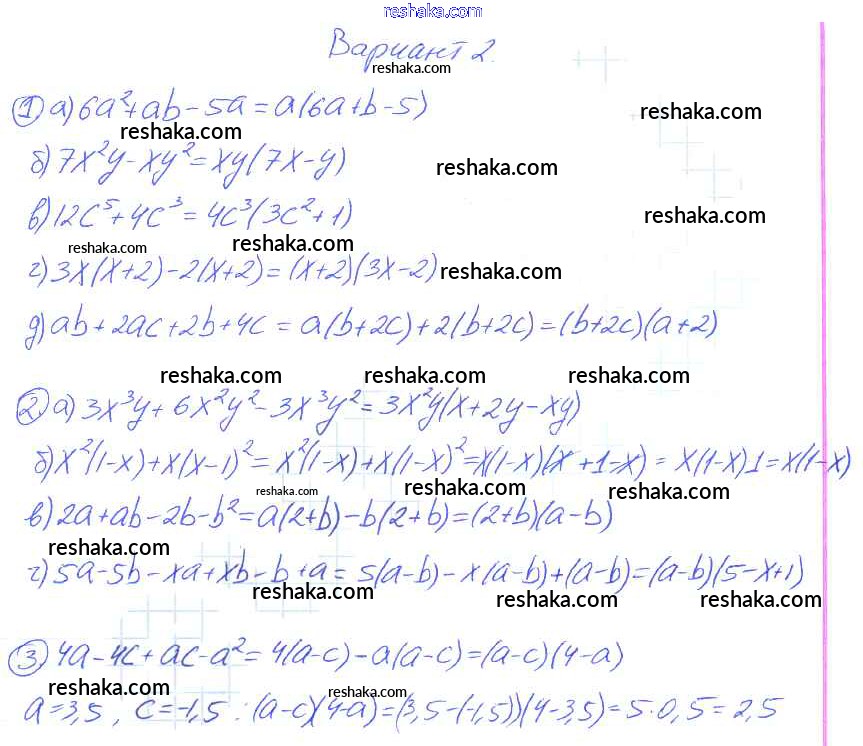 reshaka.com
Вариант 2.
reshaka.com
1) а) 6a²+ab-5a=a(6a+b-5)
reshaka.com
reshaka.com
б) 7x²y-xy²=xy(7x-y)
reshaka.com
в) 12c⁵+4c³=4c³(3c²+1)
reshaka.com
reshaka.com
reshaka.com
г) 3x(x+2)-2(x+2)=(x+2)(3x-2)
reshaka.com
д) ab+2ac+2b+4c=a(b+2c)+2(b+2c)=(b+2c)(a+2)
reshaka.com reshaka.com reshaka.com
2) а) 3x³y+6x²y²-3x³y²=3x²y(x+2y-xy)
б) x²(1-x)+x(x-1)²=x²(1-x)+x(1-x)²=x(1-x)(x+1-x)=x(1-x)1=x(1-x)
reshaka.com reshaka.com reshaka.com
в) 2a+ab-2b-b²=a(2+b)-b(2+b)=(2+b)(a-b)
reshaka.com
г) 5a-5b-xa+xb-b+a=5(a-b)-x(a-b)+(a-b)=(a-b)(5-x+1)
reshaka.com reshaka.com reshaka.com
3) 4a-4c+ac-a²=4(a-c)-a(a-c)=(a-c)(4-a)
reshaka.com reshaka.com reshaka.com
a=3,5, c=-1,5: (a-c)(4-a)=(3,5-(-1,5))(4-3,5)=5·0,5=2,5